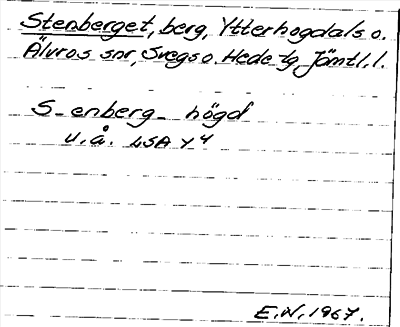 Stenberget, berg, Ytterhogdals o.
Älvros snr, Svegs o. Hede tg, Jämtl. l.
S-enberg- högd
u.å. LSA Y 4
E.W. 1967.